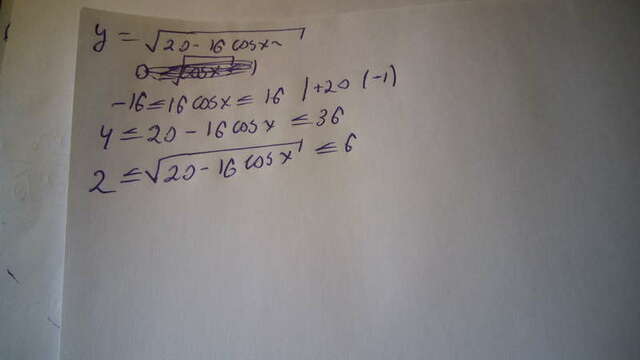 y = √(20 - 16 cos x)
-16 ≤ 16 cos x ≤ 16 | +20 (-1)
4 ≤ 20 - 16 cos x ≤ 36
2 ≤ √(20 - 16 cos x) ≤ 6